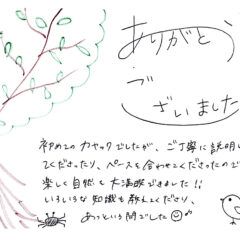 ありがとう
ございました
初めてのカヤックでしたが、ご丁寧に説明し
てくださったり、ペースを合わせてくださったので
楽しく自然を大満喫できました!!
いろいろな知識も教えてくださり、
あっという間でした